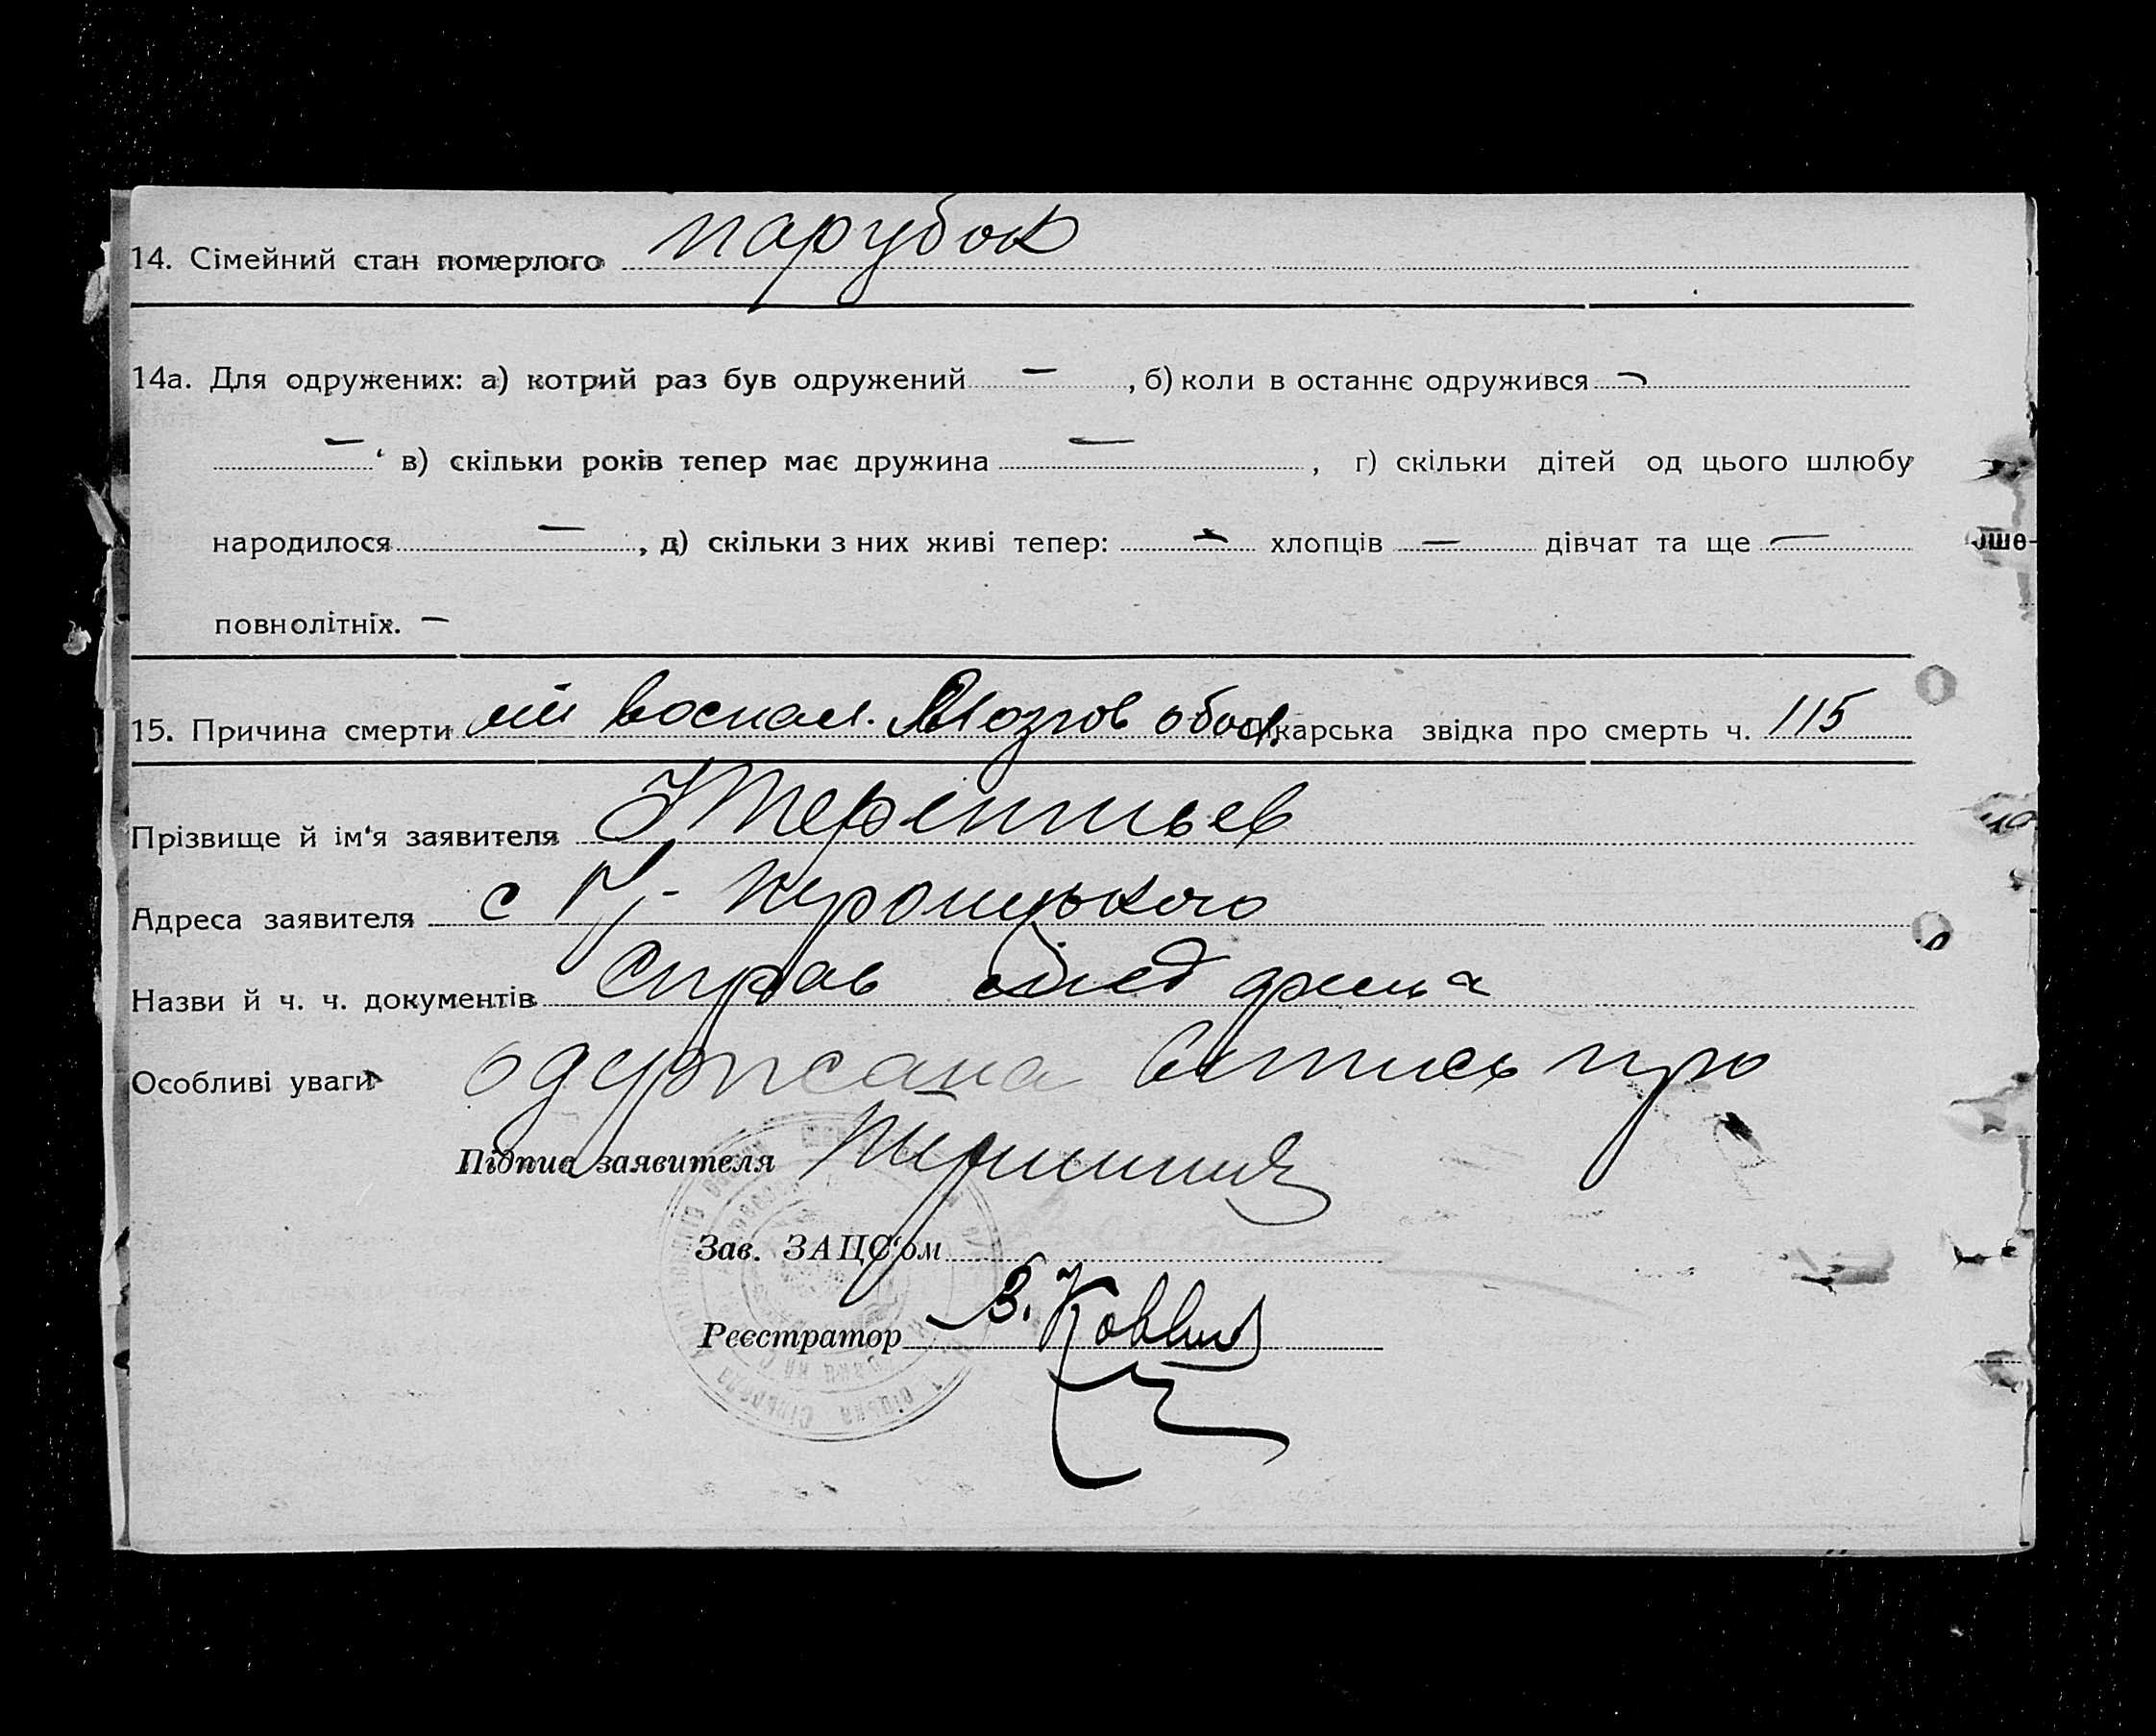 14. Сімейний стан померлого парубок
14а. Для одружених: а) котрий раз був одружений — , б) коли в останнє одружився —
— в) скільки років тепер має дружина — , г) скільки дітей од цього шлюбу
народилося — , д) скільки з них живі тепер: — хлопців — дівчат та ще —
повнолітніх. —
15. Причина смерти воспал. Мозгов обол. лікарська звідка про смерть ч. 115
Прізвище й ім'я заявителя Терентьев
Адреса заявителя с
Назви й ч. ч. документів Справ
Особливі уваги одержана випись про
Підпис заявителя
Зав. ЗАЦС'ом
Реєстратор В.